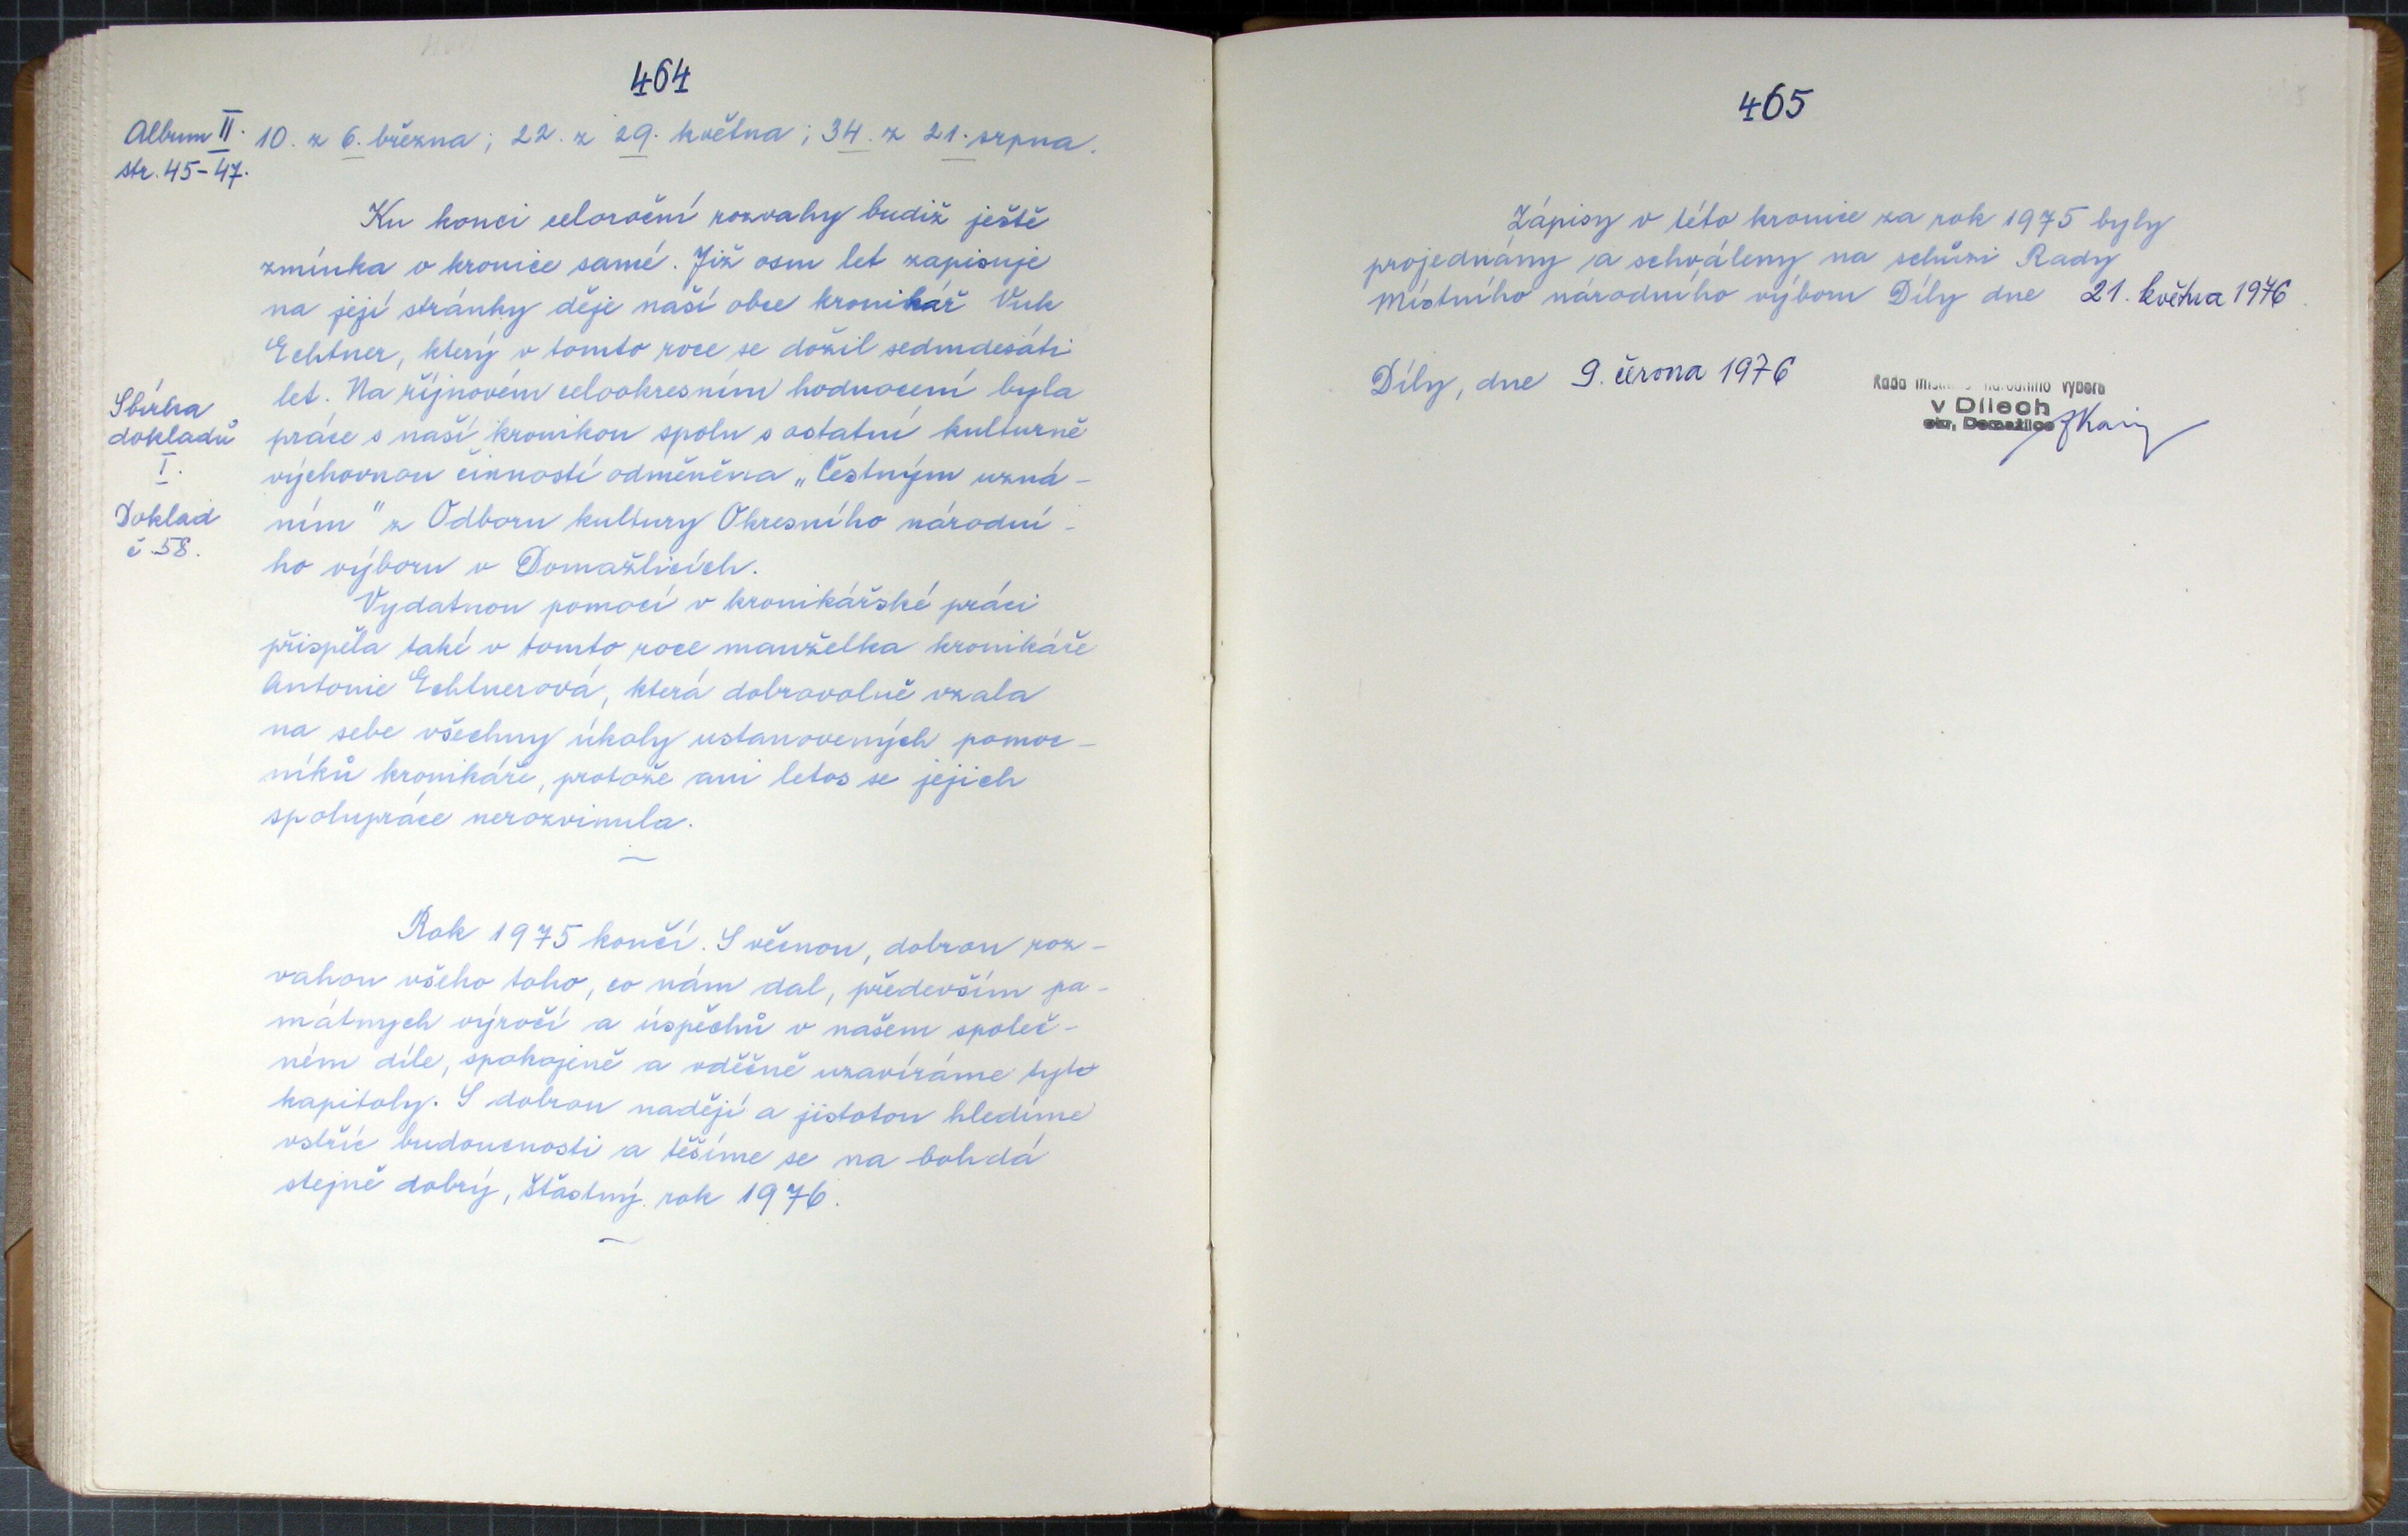 464
Album II.
str. 45-47.
10. z 6. března; 22. z 29. května; 34. z 21. srpna.
Ku konci celoroční rozvahy budiž ještě
zmínka o kronice samé. Již osm let zapisuje
na její stránky děje naší obce kronikář Vuk
Echtner, který v tomto roce se dožil sedmdesáti
let. Na říjnovém celookresním hodnocení byla
práce s naší kronikou spolu s ostatní kulturně
výchovnou činností odměněna „Čestným uzná-
ním" z Odboru kultury Okresního národní-
ho výboru v Domažlicích.
Sbírka
dokladů
I.
Doklad
č 58.
Vydatnou pomocí v kronikářské práci
přispěla také v tomto roce manželka kronikáře
Antonie Echtnerová, která dobrovolně vzala
na sebe všechny úkoly ustanovených pomoc-
níků kronikáře, protože ani letos se jejich
spolupráce nerozvinula.
Rok 1975 končí. S věcnou, dobrou roz-
vahou všeho toho, co nám dal, především pa-
mátných výročí a úspěchů v našem společ-
ném díle, spokojeně a vděčně uzavíráme tyto
kapitoly. S dobrou nadějí a jistotou hledíme
vstříc budoucnosti a těšíme se na bohdá
stejně dobrý, šťastný rok 1976.
465
Zápisy v této kronice za rok 1975 byly
projednány a schváleny na schůzi Rady
Místního národního výboru Díly dne 21. května 1976
Díly, dne 9. června 1976
Rada místního národního výboru
v Dílech
okr. Domažlice